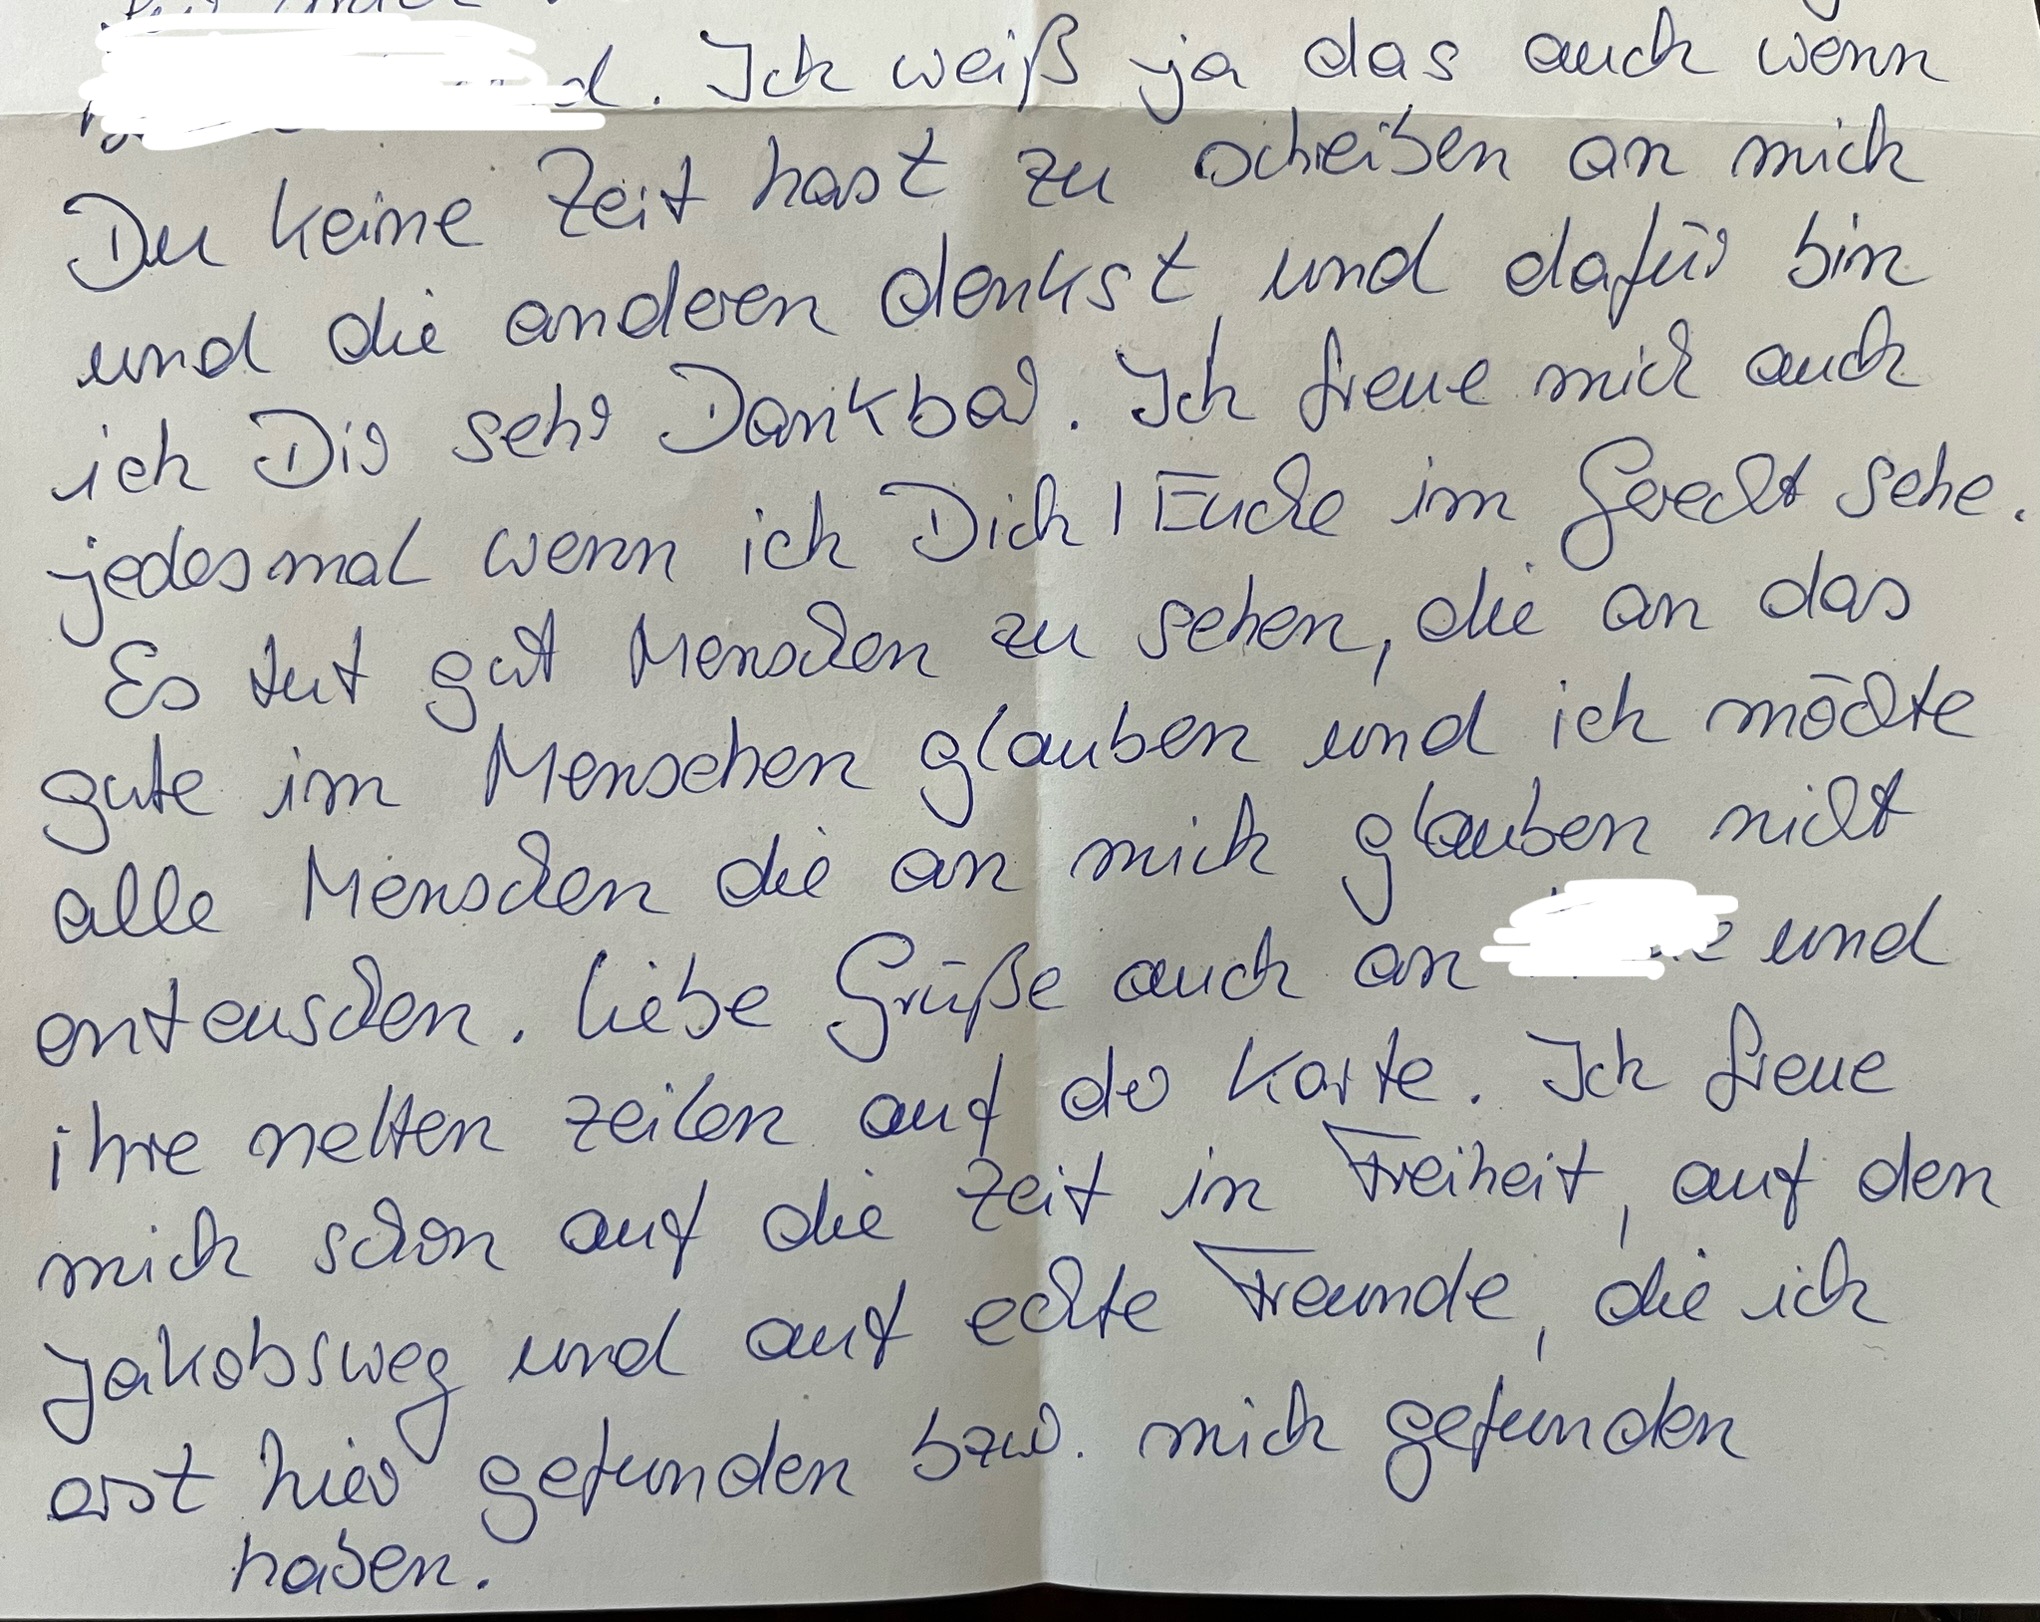 Ich weiß ja das auch wenn
Du keine Zeit hast zu schreiben an mich
und die anderen denkst und dafür bin
ich Dir sehr Dankbar. Ich freue mich auch
jedesmal wenn ich Dich / Euch im Gerecht sehe.
Es tut gut Menschen zu sehen, die an das
gute im Menschen glauben und ich möchte
alle Menschen die an mich glauben nicht
enteuschen. Liebe Grüße auch an und
ihre netten zeilen auf der Karte. Ich freue
mich schon auf die Zeit in Freiheit, auf den
Jakobsweg und auf echte Freunde, die ich
erst hier gefunden bzw. mich gefunden
haben.